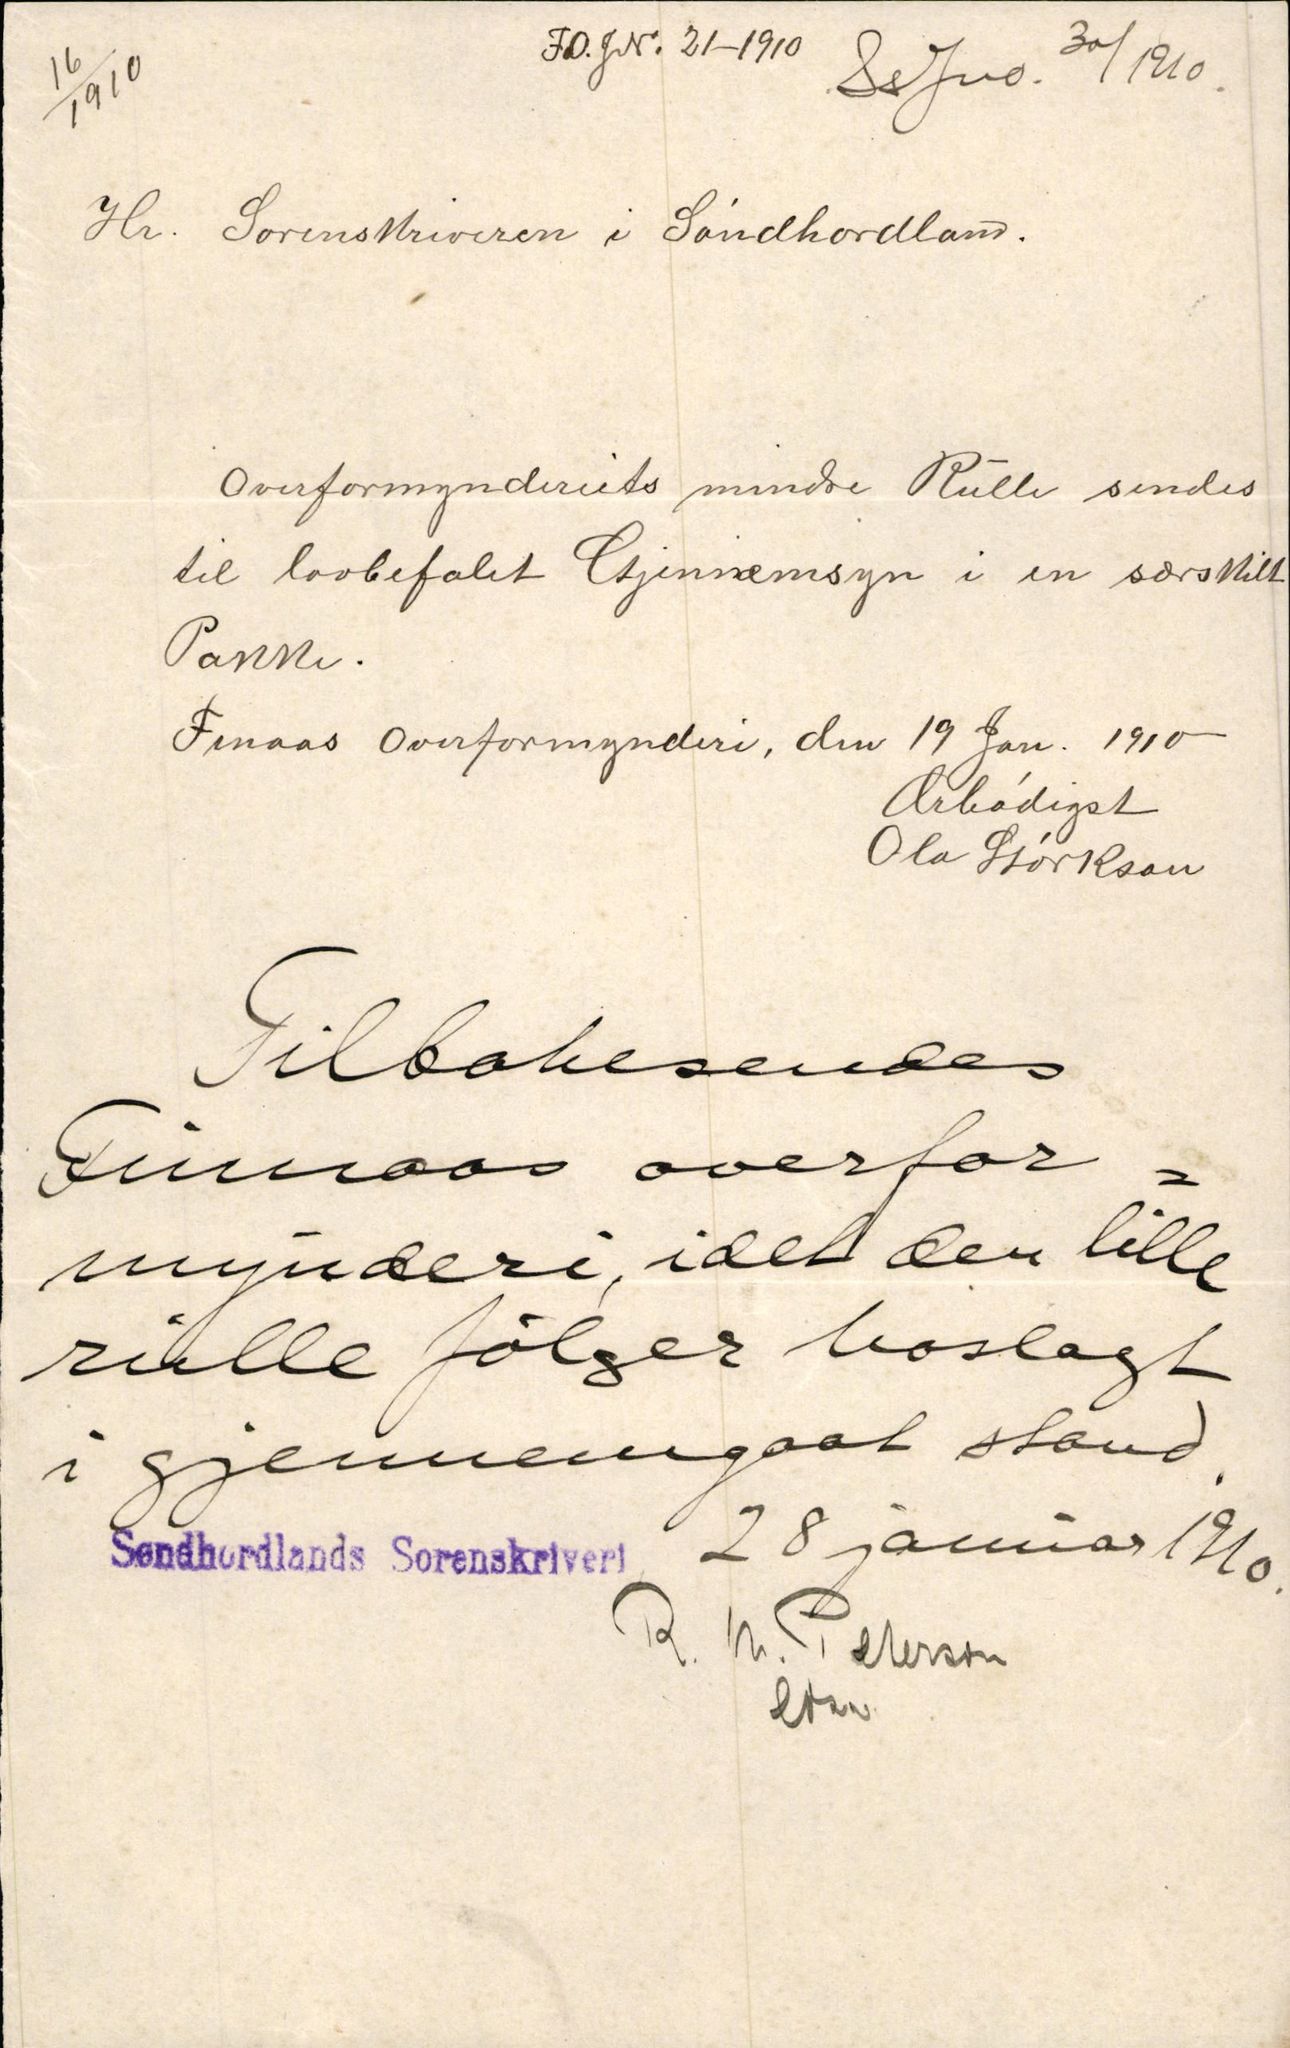 16/1910
F.O. J.Nr. 21-1910
SsJno. 30/1910.
Hr. Sorenskriveren i Söndhordland.
Overformynderiets mindre Rulle sendes
til lovbefalet Gjennemsyn i en særskilt
Pakke.
Finaas Overformynderi, den 19 Jan. 1910
Ærbödigst
Ola Störkson
Tilbakesendes
Finnaas overfor=
mynderi, idet den lille
rulle fölger hoslagt
i gjennemgaat stand.
Søndhordlands Sorenskriveri 28 januar 1910.
R. M. Peterson